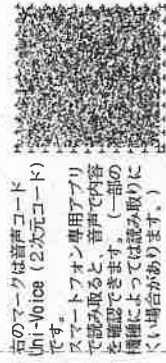 右のマークは音声コード
Uni-Voice（2次元コード）
です。
スマートフォン専用アプリ
で読み取ると、音声で内容
を確認できます。（一部の
機種によっては読み取りに
くい場合があります。）